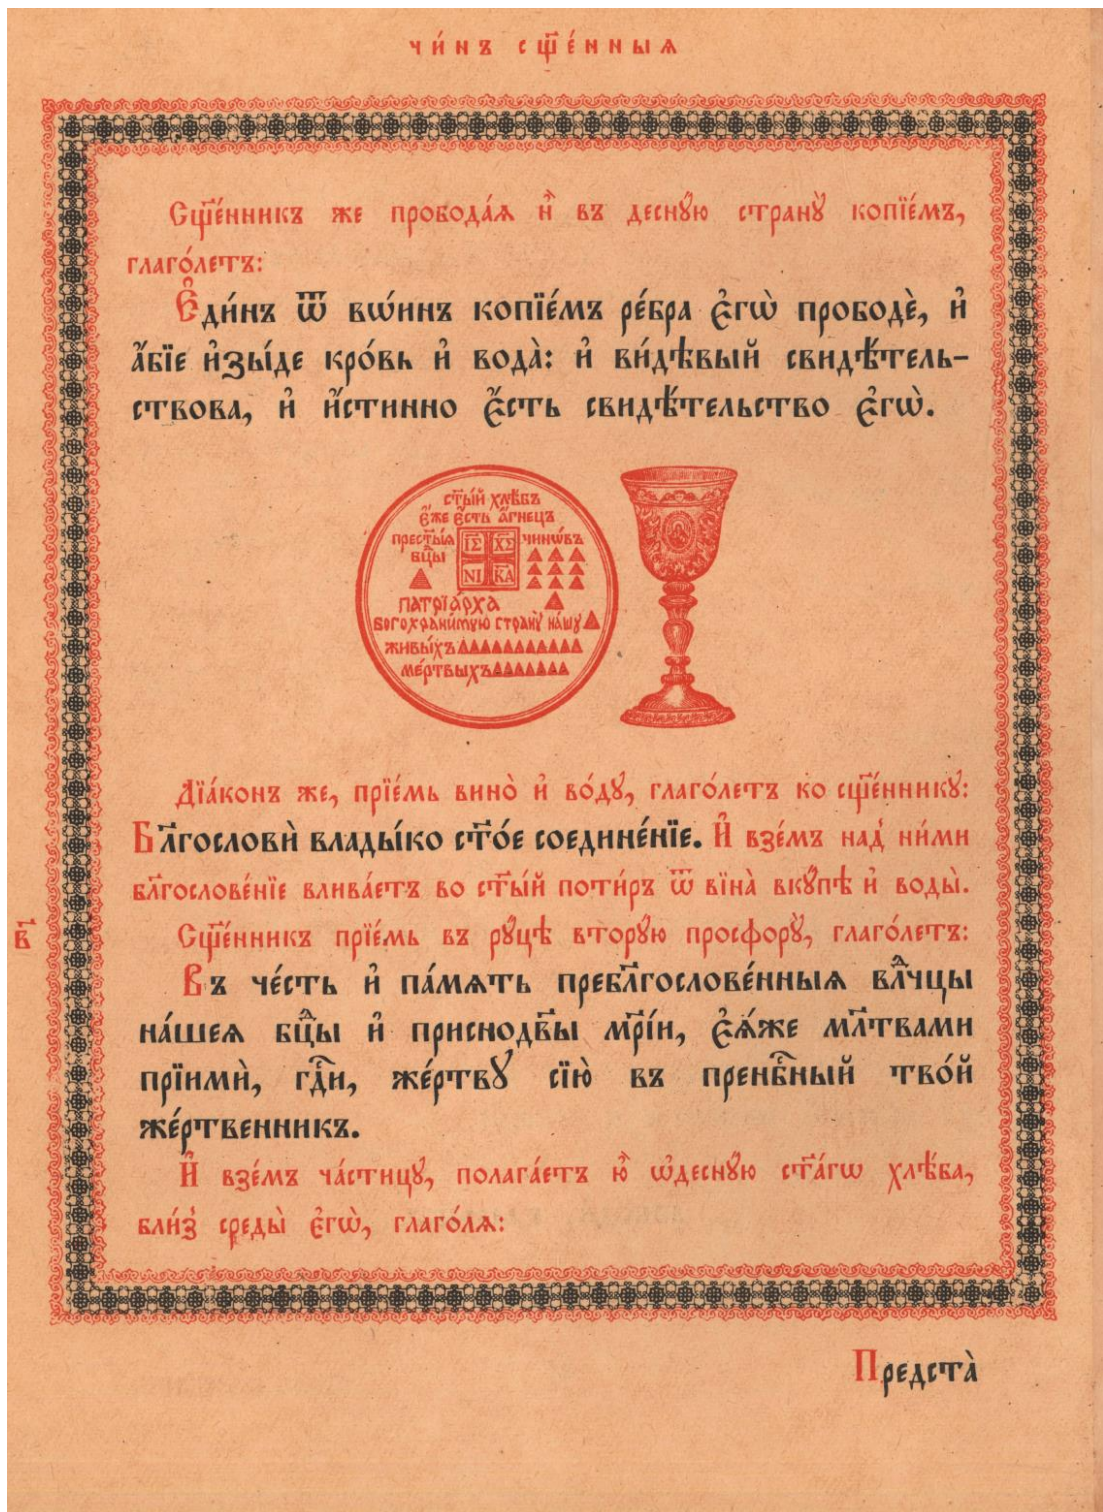 чи́нъ сщ҃е́нныѧ
Сщ҃е́нникъ же пробода́ѧ и҆̀ въ деснꙋ́ю странꙋ̀ копїе́мъ,
глаго́летъ:
Є҆ди́нъ ѿ вѡ́инъ копїе́мъ ре́бра є҆гѡ̀ прободѐ, и҆
а҆́бїе и҆зы́де кро́вь и҆ вода̀: и҆ ви́дѣвый свидѣ́тель-
ствова, и҆ и҆́стинно є҆́сть свидѣ́тельство є҆гѡ̀.
ст҃ы́й хлѣ́бъ
є҆́же є҆́сть а҆́гнецъ
прест҃ы́ѧ
бц҃ы
І҃С Х҃С
NI КА
чинѡ́въ
патрїа́рха
богохрани́мꙋю странꙋ̀ на́шꙋ
живы́хъ
ме́ртвыхъ
Дїа́конъ же, прїе́мь вино̀ и҆ во́дꙋ, глаго́летъ ко сщ҃е́нникꙋ:
Бл҃гословѝ влады́ко ст҃о́е соедине́нїе. И҆ взе́мъ над̾ ни́ми
бл҃гослове́нїе влива́етъ во ст҃ы́й поти́ръ ѿ вїна̀ вкꙋ́пѣ и҆ воды̀.
в҃
Сщ҃е́нникъ прїе́мь въ рꙋ́цѣ вторꙋ́ю просфорꙋ̀, глаго́летъ:
Въ че́сть и҆ па́мѧть пребл҃гослове́нныѧ влⷣчцы
на́шеѧ бцⷣы и҆ приснодв҃ы мр҃і́и, є҆ѧ́же мл҃твами
прїимѝ, гдⷭ҇и, же́ртвꙋ сїю̀ въ пренбⷭ҇ный тво́й
же́ртвенникъ.
И҆ взе́мъ ча́стицꙋ, полага́етъ ю҆̀ ѡ҆деснꙋ́ю ст҃а́гѡ хлѣ́ба,
бли́з̾ среды̀ є҆гѡ̀, глаго́лѧ:
Предста̀